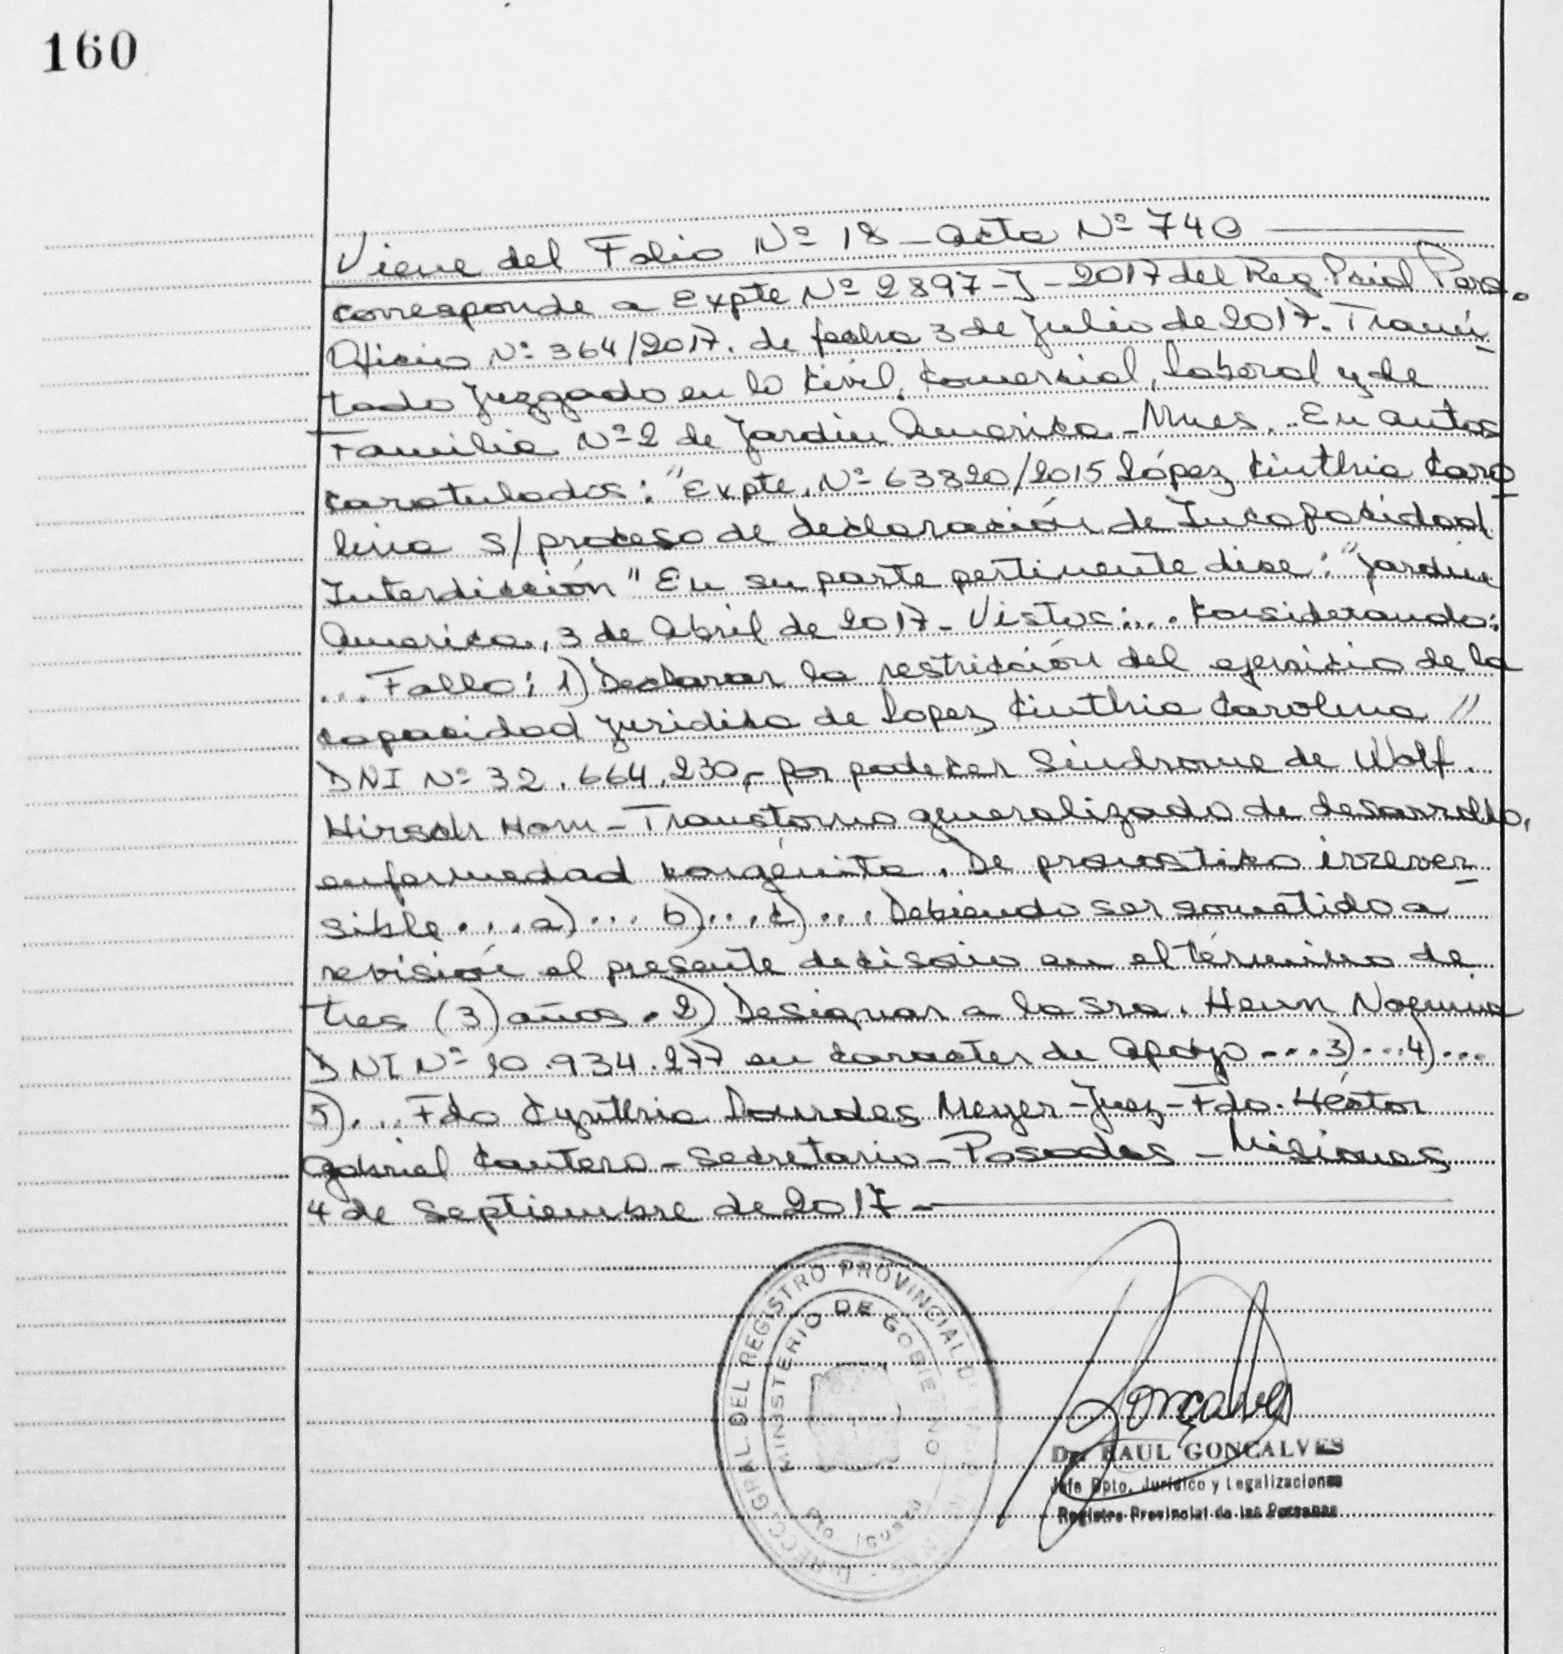 160
Viene del Folio Nº 18 - acta Nº 740
corresponde a Expte Nº 2897-J-2017 del Reg. Pcial Pers.
Oficio Nº 364/2017. de fecha 3 de Julio de 2017. Trami
tado Juzgado en lo Civil, Comercial, laboral y de
Familia Nº 2 de Jardin America - Mnes. En autos
caratulados: "Expte. Nº 63820/2015 López Cinthia Caro
lina s/ proceso de declaración de Incapacidad
Interdicción" En su parte pertinente dice: "Jardin
America, 3 de Abril de 2017 - Vistos: ... Considerando:
... Fallo: 1) Declarar la restricción del ejercicio de la
capacidad juridica de Lopez Cinthia Carolina //
DNI Nº 32.664.230,- por padecer Sindrome de Wolf.
Hirsch Horn - Transtorno generalizado de desarrollo,
enfermedad congénita. De pronostico irrever
sible... a)... b)... c)... Debiendo ser sometido a
revisión el presente decisorio en el término de
tres (3) años. 2) Designar a la sra. Henn Noemia
DNI Nº 10.934.277 en caracter de apoyo ... 3)... 4)...
5)... Fdo Cynthia Lourdes Meyer - Juez - Fdo. Héctor
Gabriel Cantero - Secretario - Posadas - Misiones
4 de Septiembre de 2017 -
DIRECC. GRAL. DEL REGISTRO PROVINCIAL DE LAS PERSONAS
MINISTERIO DE GOBIERNO
Pto. Iguazú
Gonçalves
Dr. RAUL GONCALVES
Jefe Dpto. Jurídico y Legalizaciones
Registro Provincial de las Personas